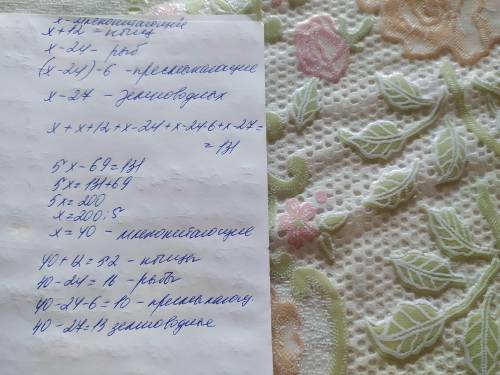 x - млекопитающие
x + 12 = птиц
x - 24 - рыб
(x - 24) - 6 - пресмыкающие
x - 27 - земноводных
x + x + 12 + x - 24 + x - 24 6 + x - 27 =
= 131
5x - 69 = 131
5x = 131 + 69
5x = 200
x = 200 : 5
x = 40 - млекопитающие
40 + 12 = 52 - птицы
40 - 24 = 16 - рыбы
40 - 24 - 6 = 10 - пресмыкающ.
40 - 27 = 13 земноводные